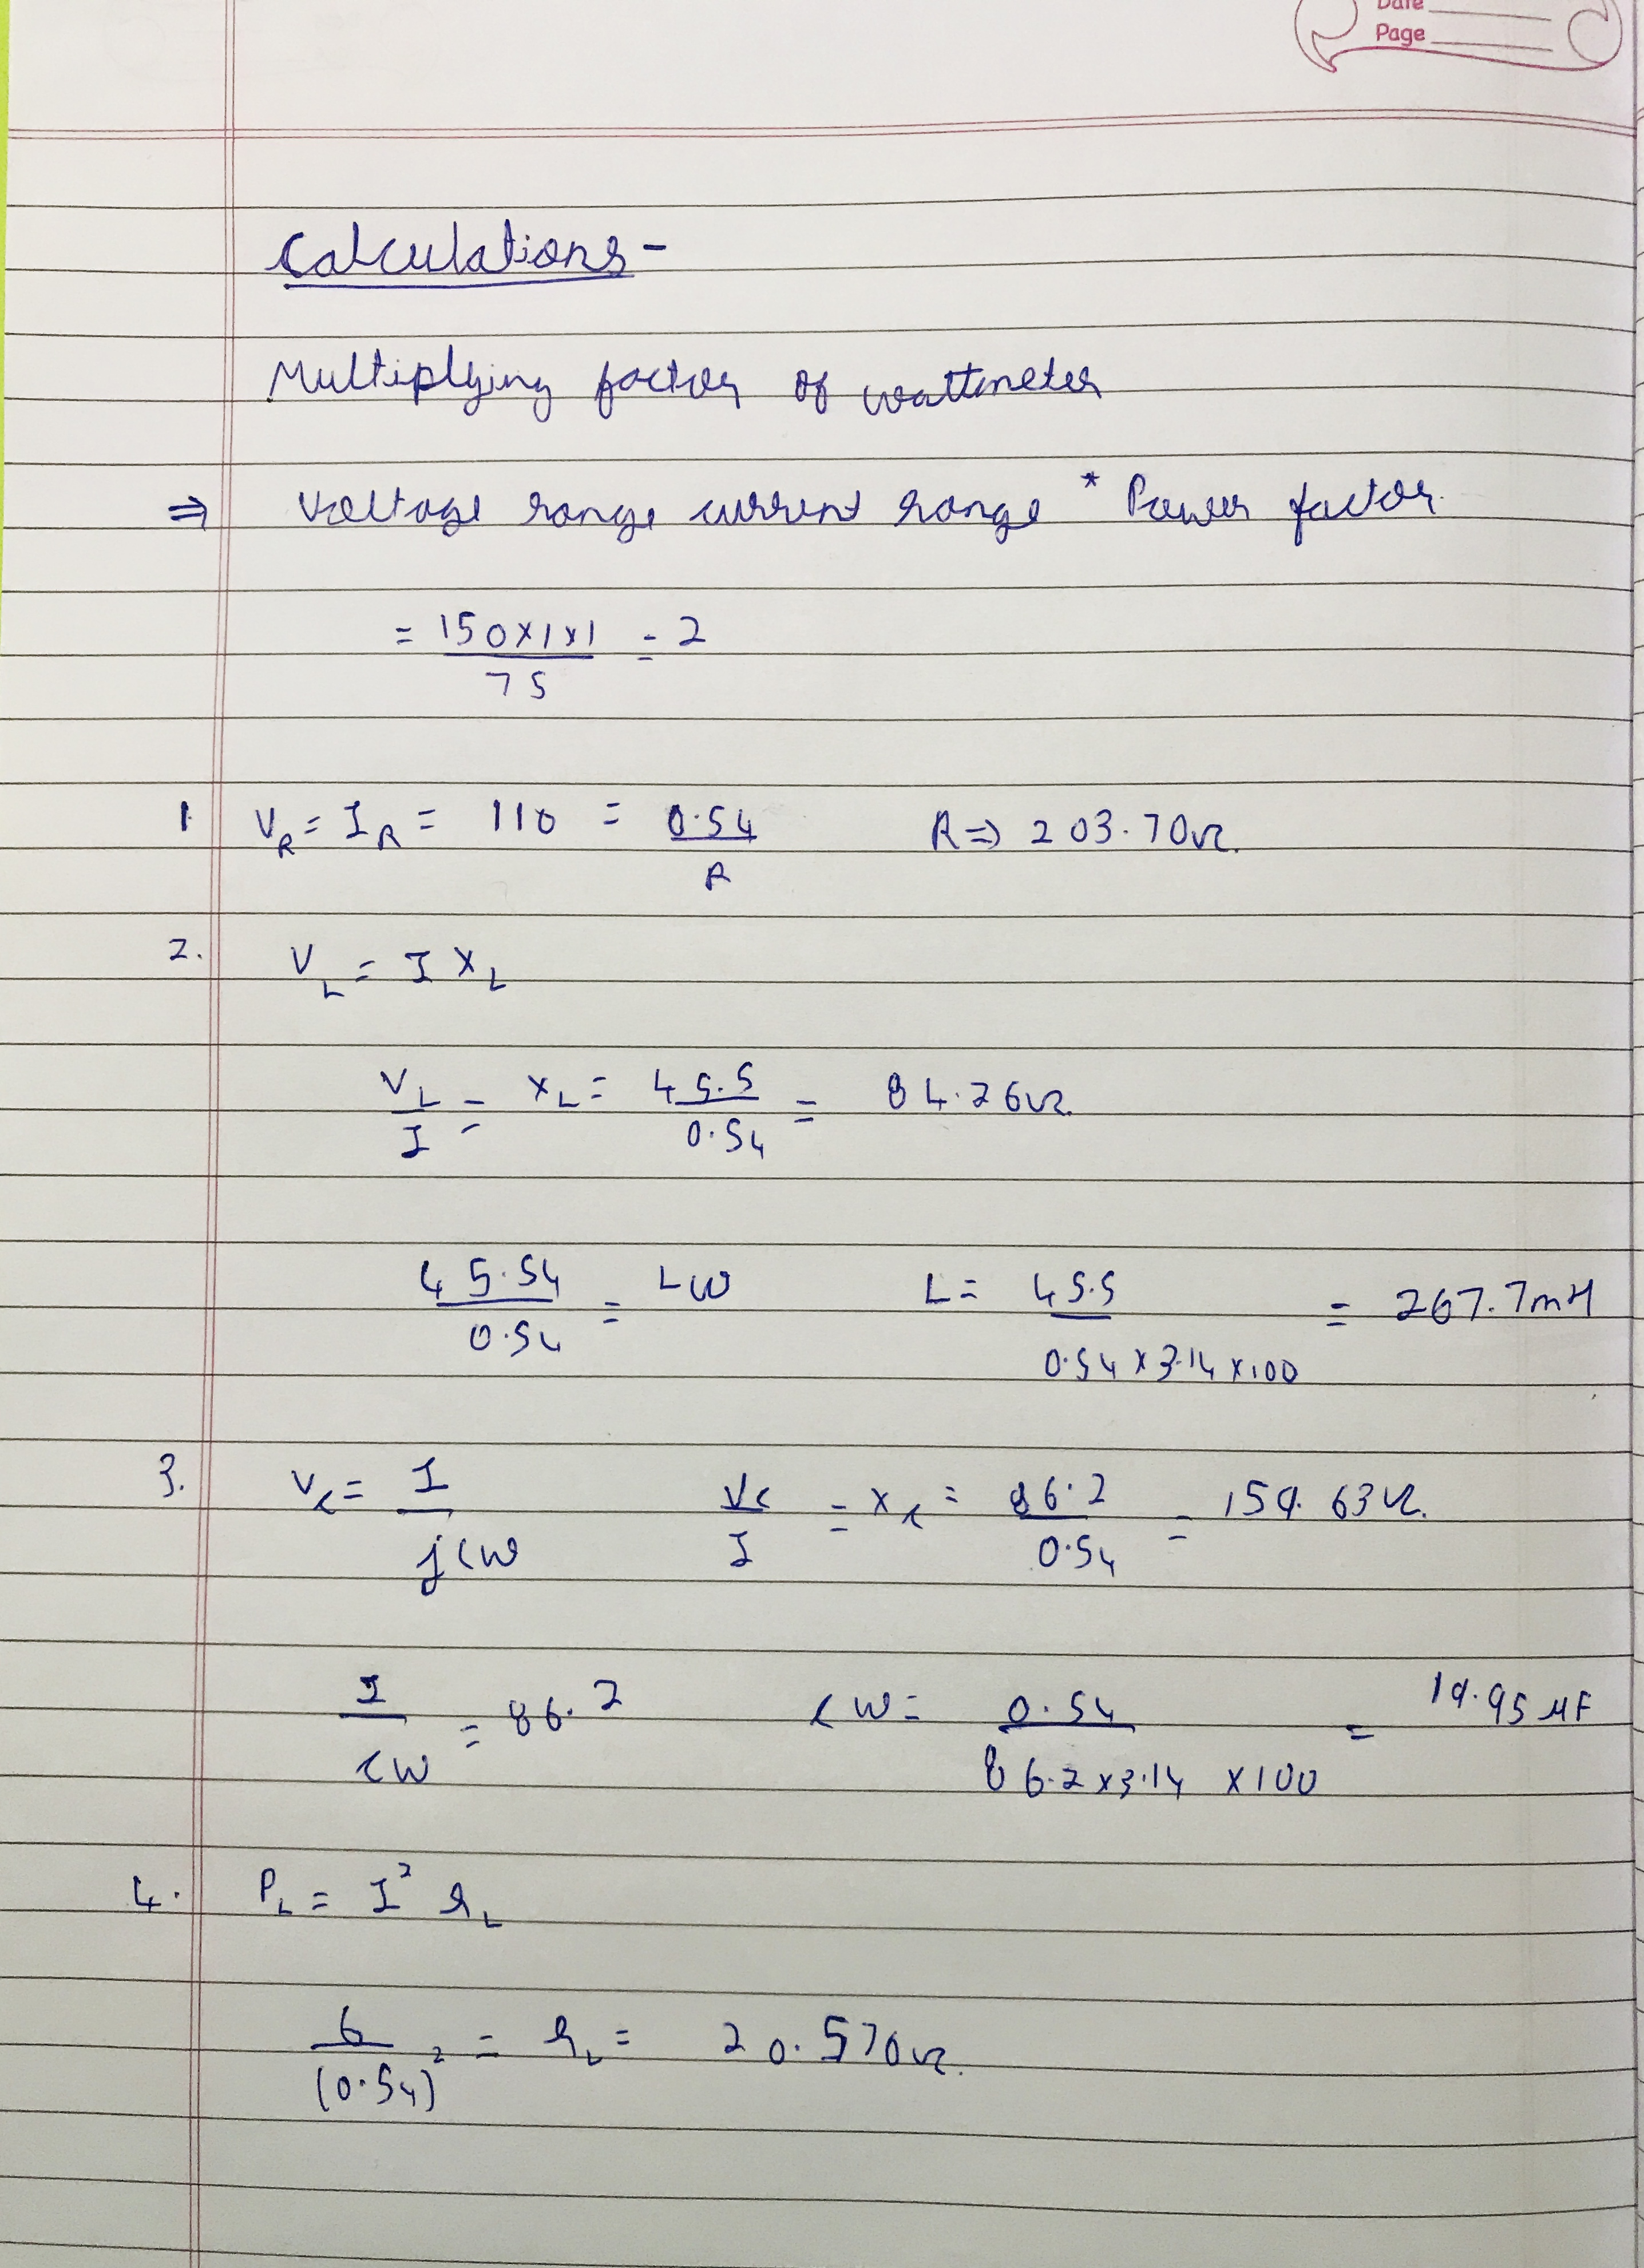 Date
Page
Calculations -
Multiplying factor of wattmeter
⇒ Voltage range current range * Power factor.
= 150×1×1 / 75 = 2
1 V_R = I_R = 110 = 0.54 / R R ⇒ 203.70Ω.
2. V_L = I X_L
V_L / I = X_L = 45.5 / 0.54 = 84.26Ω.
45.54 / 0.54 = Lω L = 45.5 / 0.54×3.14×100 = 267.7mH
3. V_C = I / jCω V_C / I = X_C = 86.2 / 0.54 = 159.63Ω.
I / Cω = 86.2 Cω = 0.54 / 86.2×3.14×100 = 19.95 μF
4. P_L = I² r_L
6 / (0.54)² = r_L = 20.570Ω.